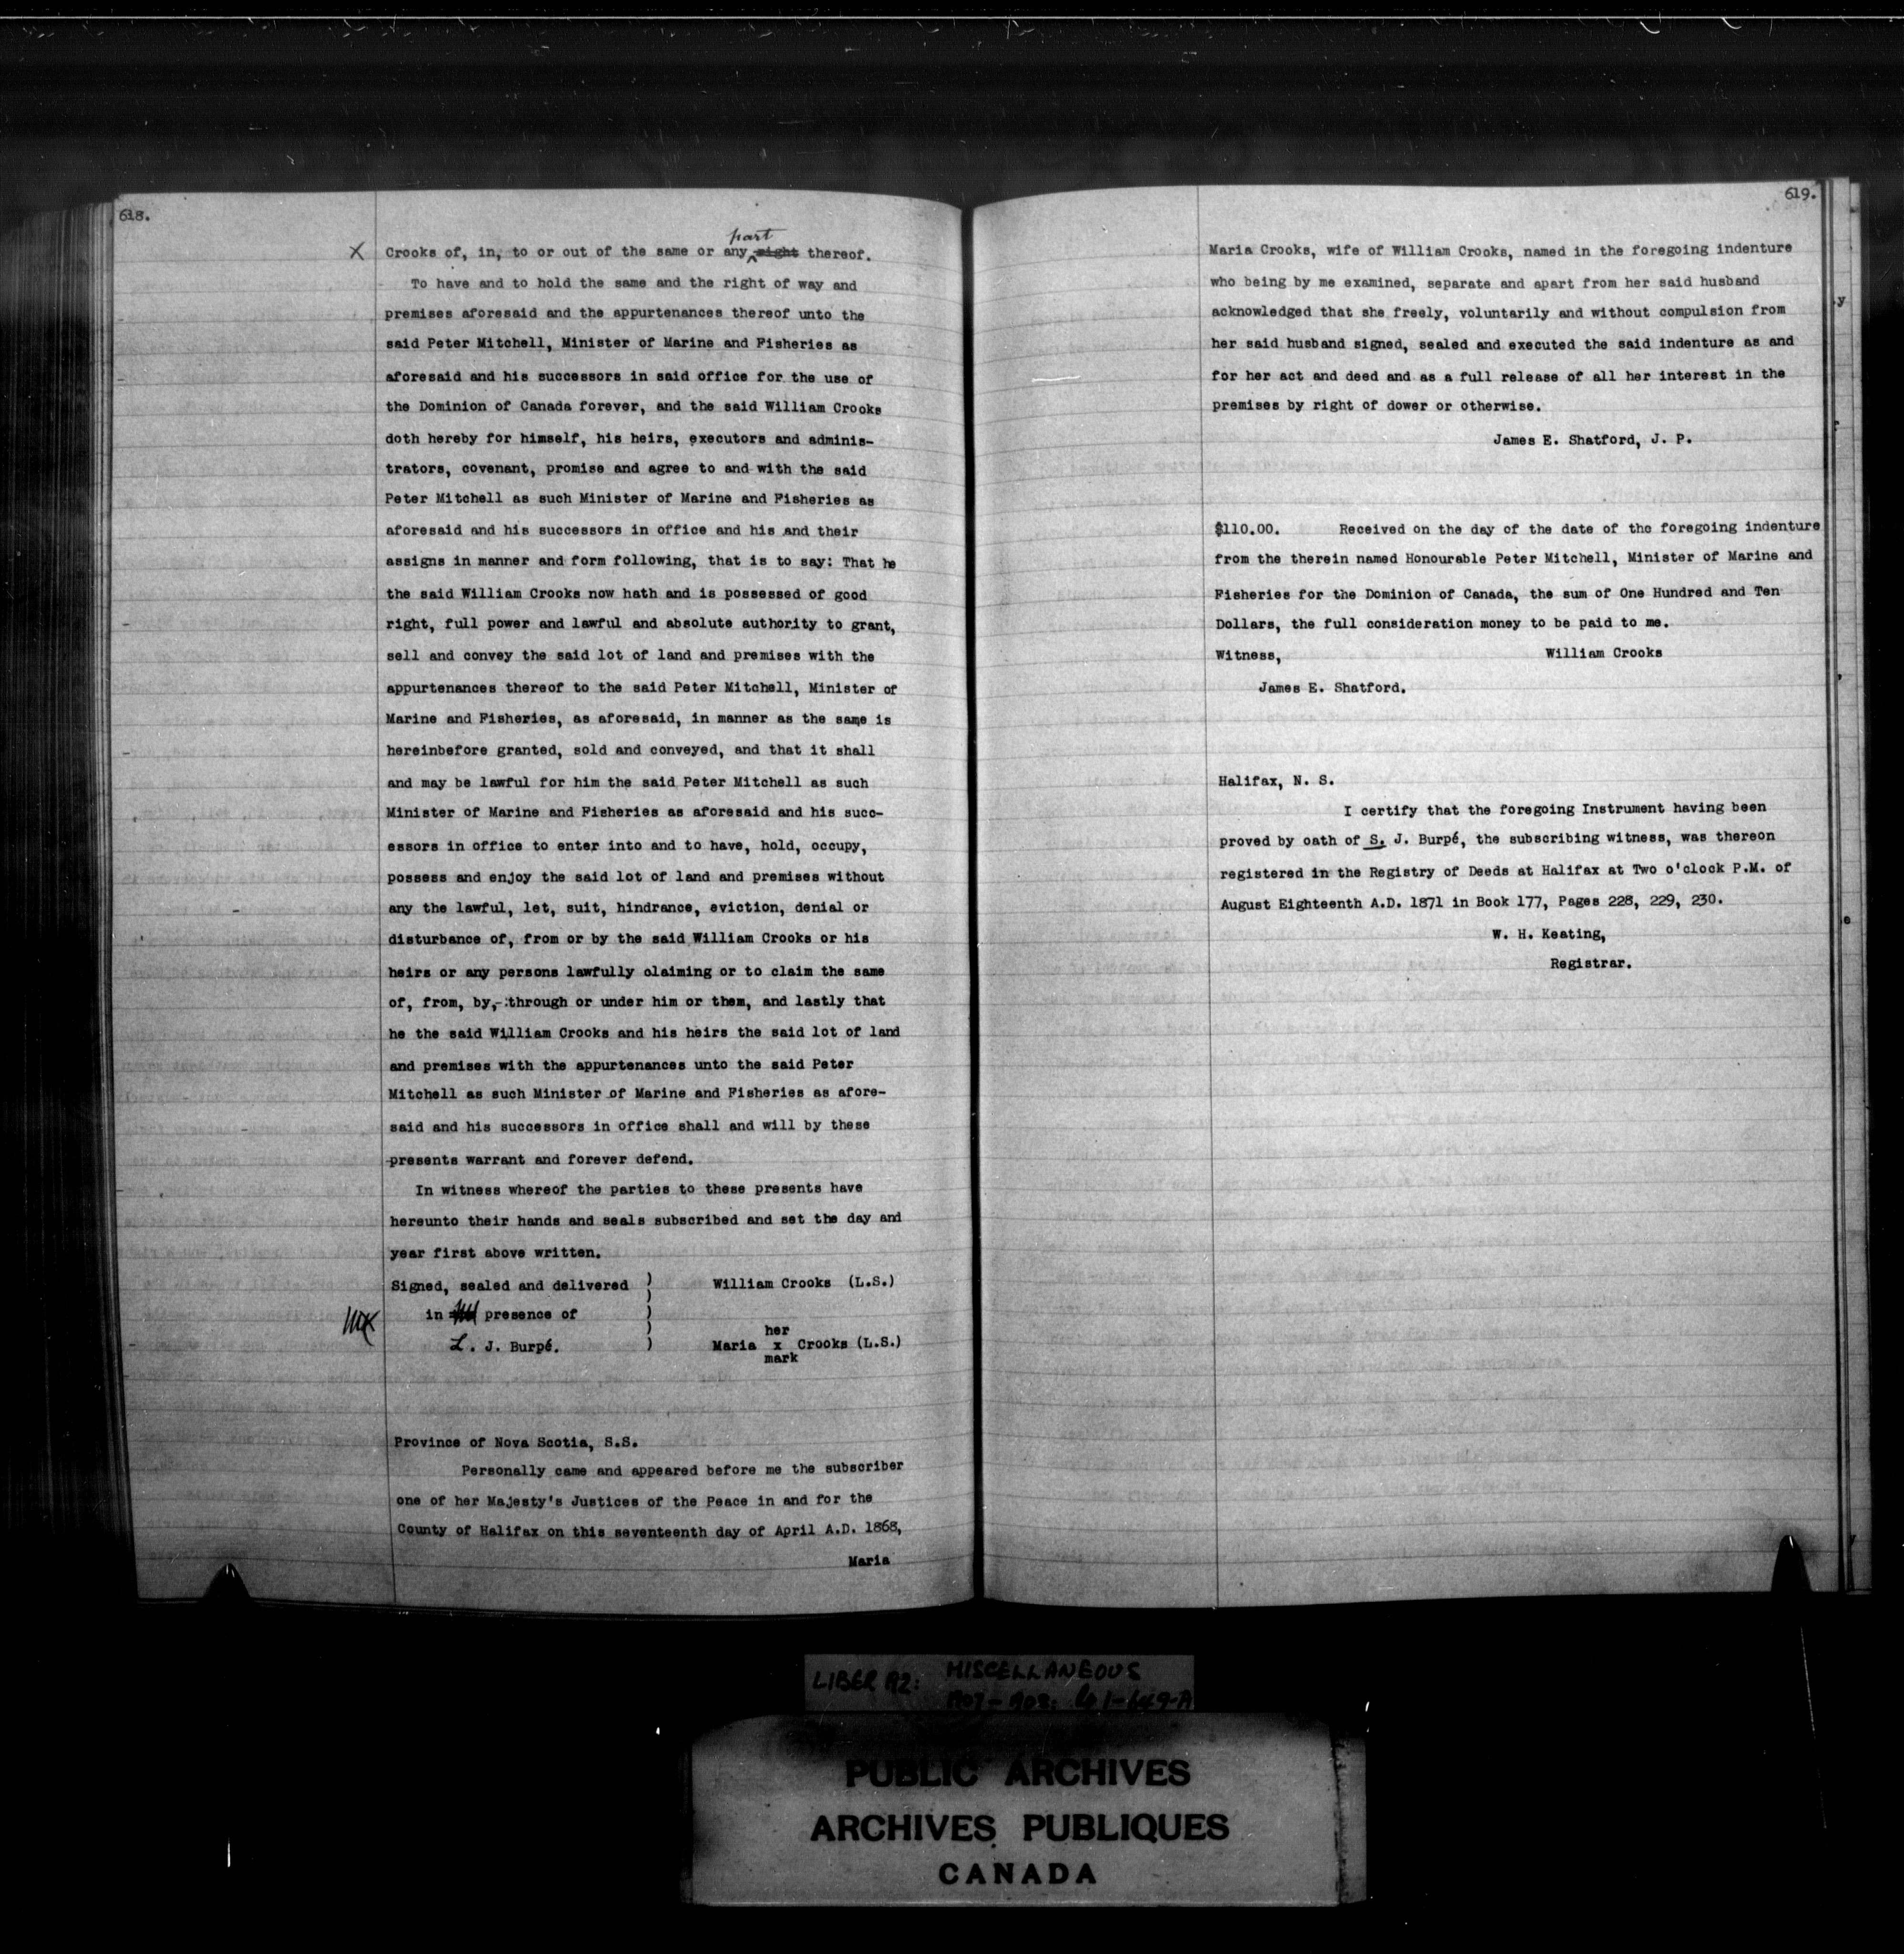 618.
part
X Crooks of, in, to or out of the same or any right thereof.
To have and to hold the same and the right of way and
premises aforesaid and the appurtenances thereof unto the
said Peter Mitchell, Minister of Marine and Fisheries as
aforesaid and his successors in said office for the use of
the Dominion of Canada forever, and the said William Crooks
doth hereby for himself, his heirs, executors and adminis-
trators, covenant, promise and agree to and with the said
Peter Mitchell as such Minister of Marine and Fisheries as
aforesaid and his successors in office and his and their
assigns in manner and form following, that is to say: That he
the said William Crooks now hath and is possessed of good
right, full power and lawful and absolute authority to grant,
sell and convey the said lot of land and premises with the
appurtenances thereof to the said Peter Mitchell, Minister of
Marine and Fisheries, as aforesaid, in manner as the same is
hereinbefore granted, sold and conveyed, and that it shall
and may be lawful for him the said Peter Mitchell as such
Minister of Marine and Fisheries as aforesaid and his succ-
essors in office to enter into and to have, hold, occupy,
possess and enjoy the said lot of land and premises without
any the lawful, let, suit, hindrance, eviction, denial or
disturbance of, from or by the said William Crooks or his
heirs or any persons lawfully claiming or to claim the same
of, from, by, through or under him or them, and lastly that
he the said William Crooks and his heirs the said lot of land
and premises with the appurtenances unto the said Peter
Mitchell as such Minister of Marine and Fisheries as afore-
said and his successors in office shall and will by these
presents warrant and forever defend.
In witness whereof the parties to these presents have
hereunto their hands and seals subscribed and set the day and
year first above written.
Signed, sealed and delivered ) William Crooks (L.S.)
in presence of )
her
L. J. Burpé. ) Maria x Crooks (L.S.)
mark
Province of Nova Scotia, S.S.
Personally came and appeared before me the subscriber
one of her Majesty's Justices of the Peace in and for the
County of Halifax on this seventeenth day of April A.D. 1868,
Maria
619.
Maria Crooks, wife of William Crooks, named in the foregoing indenture
who being by me examined, separate and apart from her said husband
acknowledged that she freely, voluntarily and without compulsion from
her said husband signed, sealed and executed the said indenture as and
for her act and deed and as a full release of all her interest in the
premises by right of dower or otherwise.
James E. Shatford, J. P.
$110.00. Received on the day of the date of the foregoing indenture
from the therein named Honourable Peter Mitchell, Minister of Marine and
Fisheries for the Dominion of Canada, the sum of One Hundred and Ten
Dollars, the full consideration money to be paid to me.
Witness, William Crooks
James E. Shatford.
Halifax, N. S.
I certify that the foregoing Instrument having been
proved by oath of S. J. Burpé, the subscribing witness, was thereon
registered in the Registry of Deeds at Halifax at Two o'clock P.M. of
August Eighteenth A.D. 1871 in Book 177, Pages 228, 229, 230.
W. H. Keating,
Registrar.
LIBER A2: MISCELLANEOUS
PUBLIC ARCHIVES
ARCHIVES PUBLIQUES
CANADA